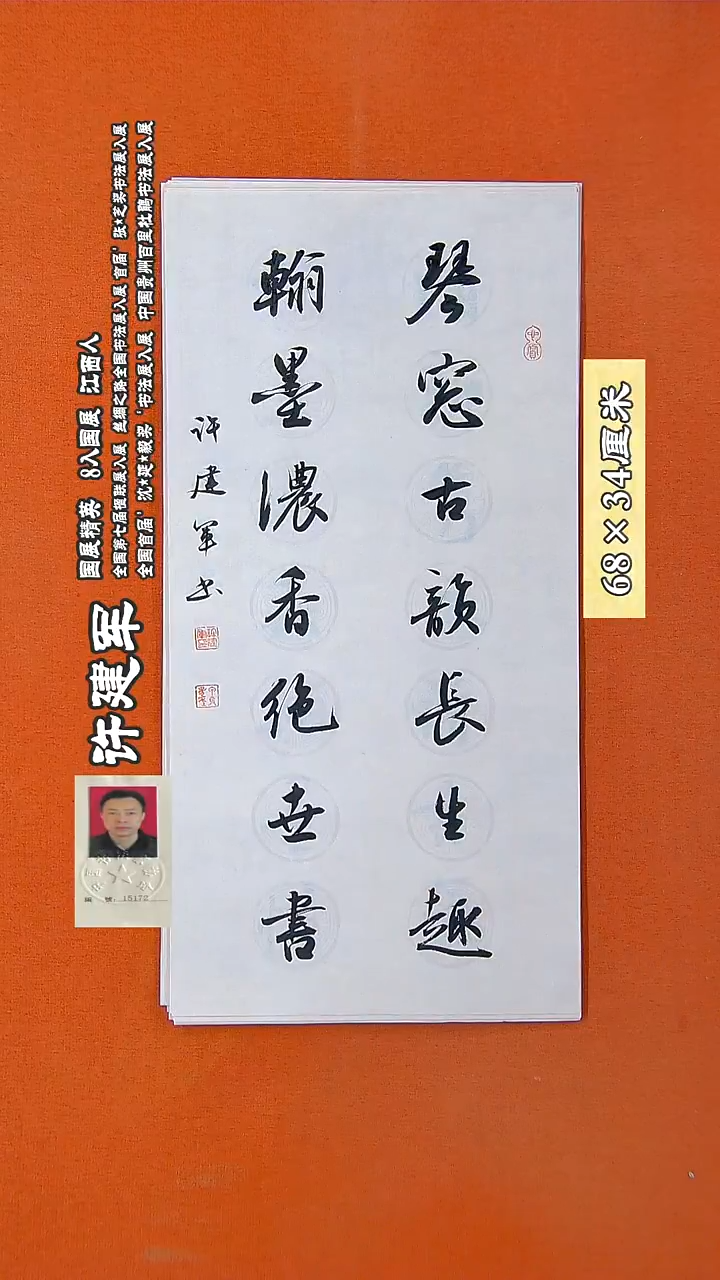 琴窓古韻長生趣
翰墨濃香絶世書
许建军书
许建军
国展精英 8入国展 江西人
全国第七届楹联展入展 丝绸之路全国书法展入展 首届‘张★芝奖书法展入展
全国首届‘沈★延★毅奖‘书法展入展 中国贵州百里杜鹃书法展入展
68×34厘米
15172